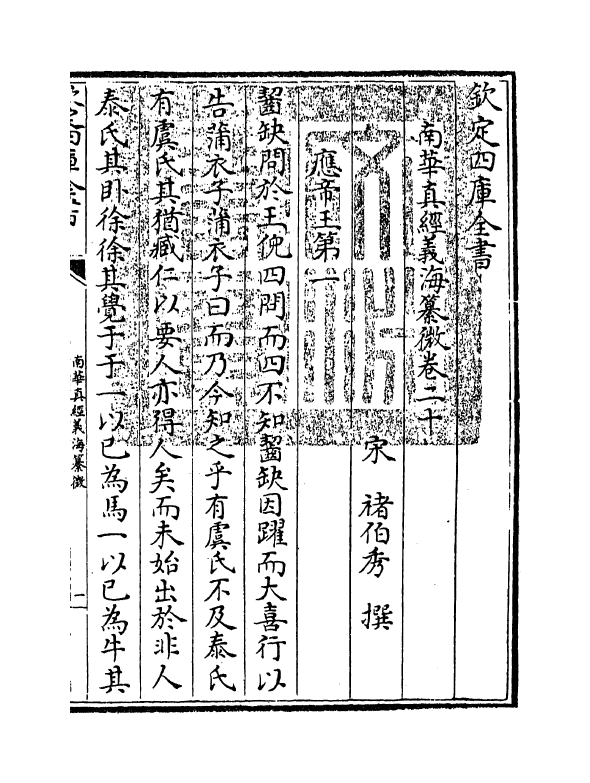 欽定四庫全書
南華真經義海纂微卷二十
宋 褚伯秀 撰
應帝王第一
齧缺問於王倪四問而四不知齧缺因躍而大喜行以
告蒲衣子蒲衣子曰而乃今知之乎有虞氏不及泰氏
有虞氏其猶臧仁以要人亦得人矣而未始出於非人
泰氏其卧徐徐其覺于于一以已為馬一以已為牛其
南華真經義海纂微